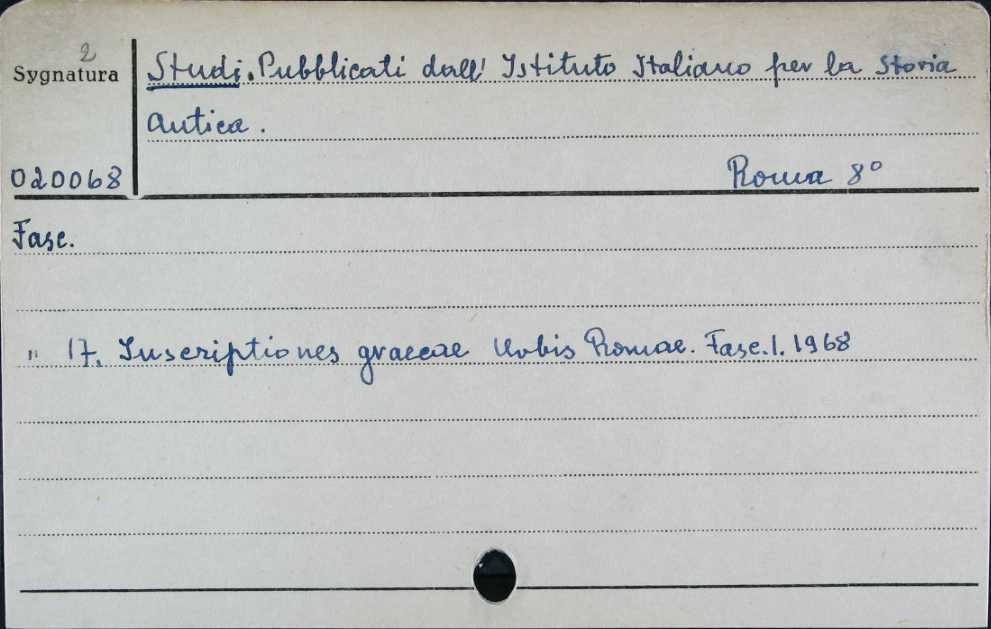 2
Sygnatura
Studi. Pubblicati dall' Istituto Italiano per la Storia
Antica.
020068
Roma 8°
Fasc.
" 17. Inscriptiones graecae Urbis Romae. Fasc. 1. 1968